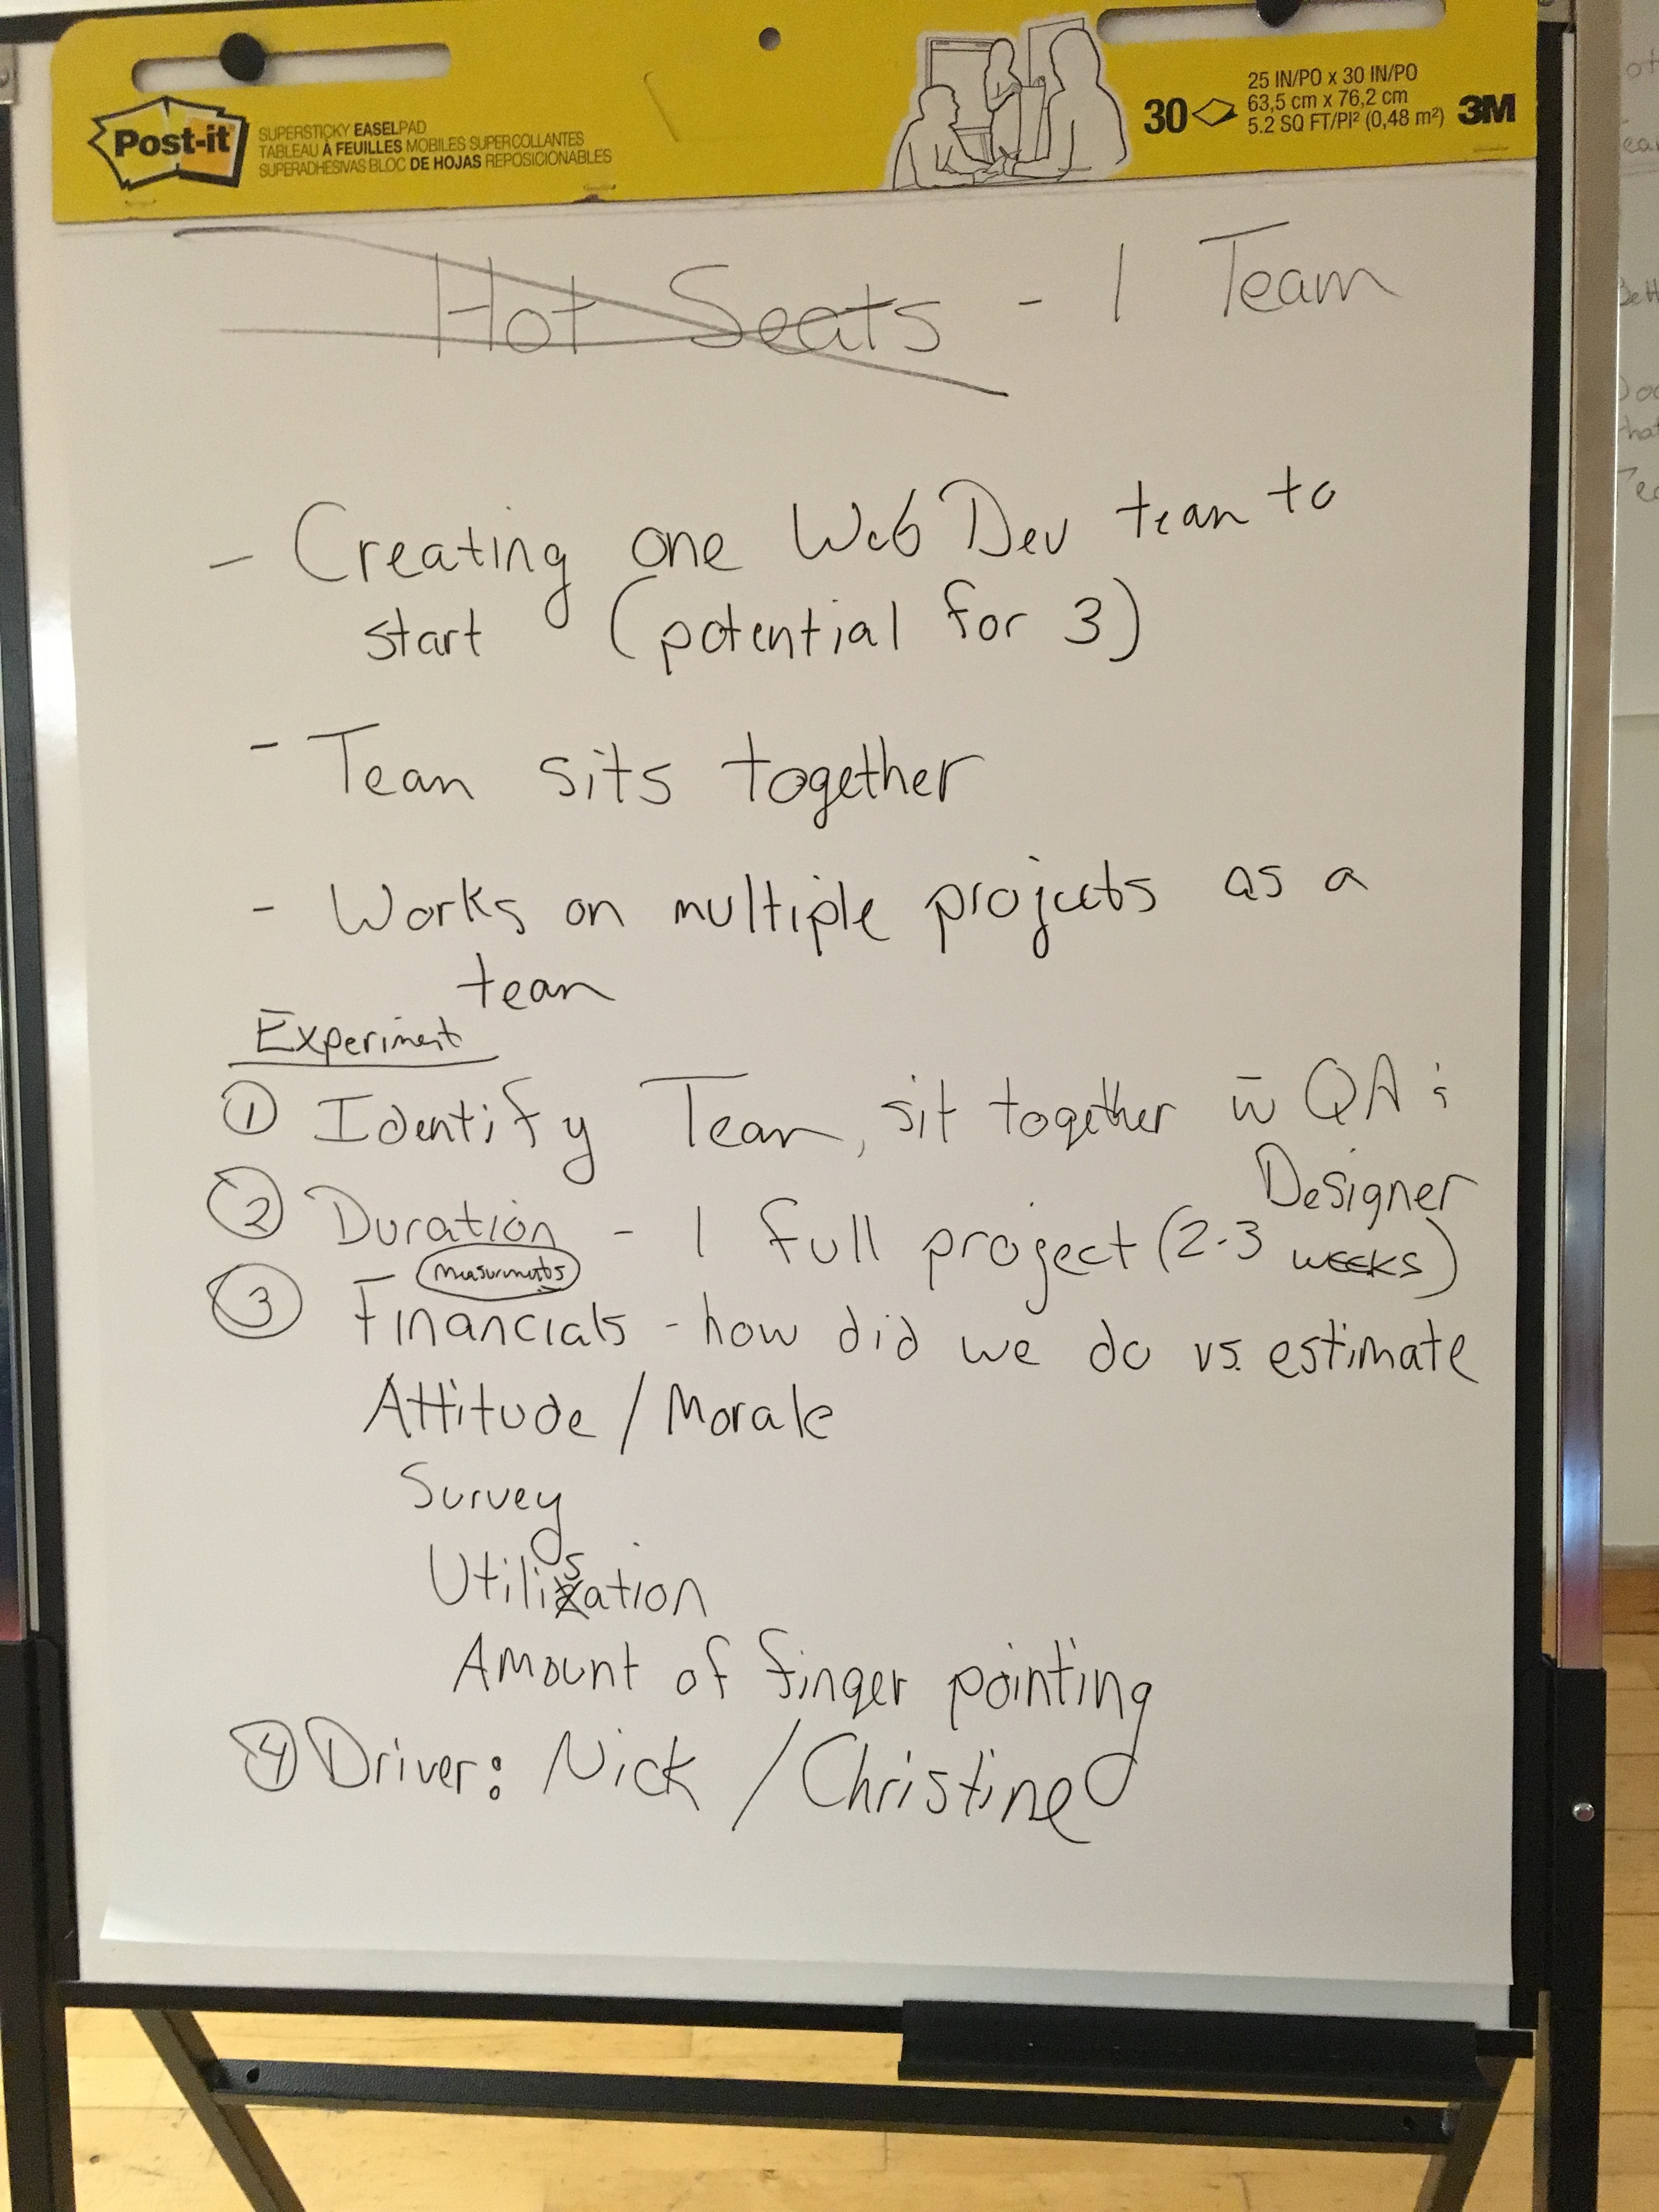 Post-it
SUPERSTICKY EASELPAD
TABLEAU À FEUILLES MOBILES SUPERCOLLANTES
SUPERADHESIVAS BLOC DE HOJAS REPOSICIONABLES
30
25 IN/PO x 30 IN/PO
63,5 cm x 76,2 cm
5.2 SQ FT/PI² (0,48 m²)
3M
Hot Seats - 1 Team
- Creating one Web Dev team to
start (potential for 3)
- Team sits together
- Works on multiple projects as a
team
Experiment
① Identify Team, sit together w̄ QA &
Designer
② Duration - 1 full project (2-3 weeks)
Measurments
③ Financials - how did we do vs. estimate
Attitude / Morale
Survey
Utilisation
Amount of finger pointing
④ Driver: Nick / Christine